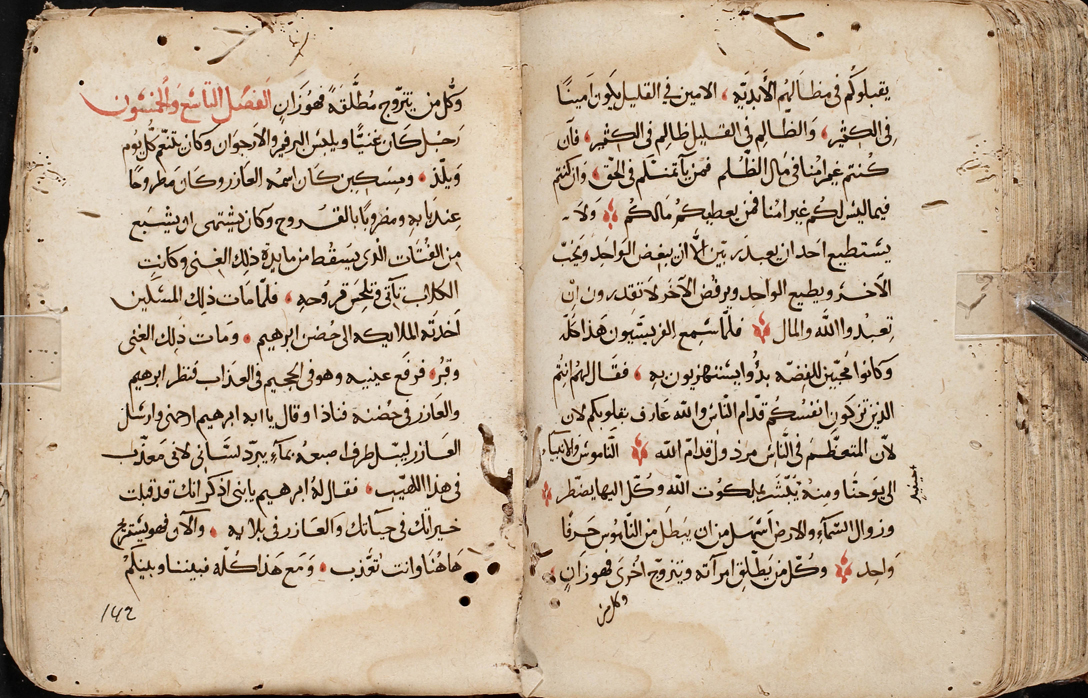 يقبلوكم في مظالهم الأبديه الامين في القليل يكون امينًا
في الكثير والظالم في القليل ظالم في الكثير فان
كنتم غير امنا في مال الظلم فمن يأتمنكم في الحق وان كنتم
فيما ليس لكم غير امنا فمن يعطيكم مالكم ولا
يستطيع احد ان يعبد ربين الّا ان يبغض الواحد ويحبّ
الآخر ويطيع الواحد ويرفض الآخر لا تقدرون ان
تعبدوا الله والمال فلمّا سمع الفريسيون هذا كلّه
وكانوا محبين للفضه بدوا يستهزيون به فقال لهم انتم
الذين تزكون انفسكم قدام الناس والله عارف بقلوبكم لان
لانّ المتعظم في الناس مرذول قدام الله الناموس والانبياء
الى يوحنّا ومنه يُبشّر بملكوت الله وكلّ اليها يضطر
وزوال السّمآء والارض أسهل من ان يبطل من النّاموس حرفًا
واحد وكلّ من يطلّق امرآته ويتزوّج اخرى فهو زانٍ
وكل من
وكُل من يتزوّج مُطلَّقةً فهو زانٍ الفصل التاسع والخمسون
رجل كان غنيًا ويلبس البرفير والارجوان وكان يتنعّم كلّ يوم
ويلذّ ومسكين كان اسمه العازر وكان مطروحًا
عند بابه ومضروبًا بالقروح وكان يشتهي ان يشبع
من الفتات الذي يسقط من مايدة ذلك الغني وكانت
الكلاب تأتي فتلحس قروحه فلمّا مات ذلك المسكين
اخذته الملايكه الى حضن ابرهيم ومات ذلك الغني
وقبر فرفع عينيه وهو في الجحيم في العذاب فنظر ابرهيم
والعازر في حضنه فنادا وقال يا ابه ابرهيم ارحمني وارسل
العازر ليبل طرف اصبعه بمآء يبرّد لساني لانّي معذّب
في هذا اللهيب فقال لهُ ابرهيم يا بني اذكر انك قد قبلت
خيراتك في حياتك والعازر في بلايه والآن فهو يستريح
هاهُنا وانت تُعذّب ومع هذا كلّه فبيننا وبينكم
142